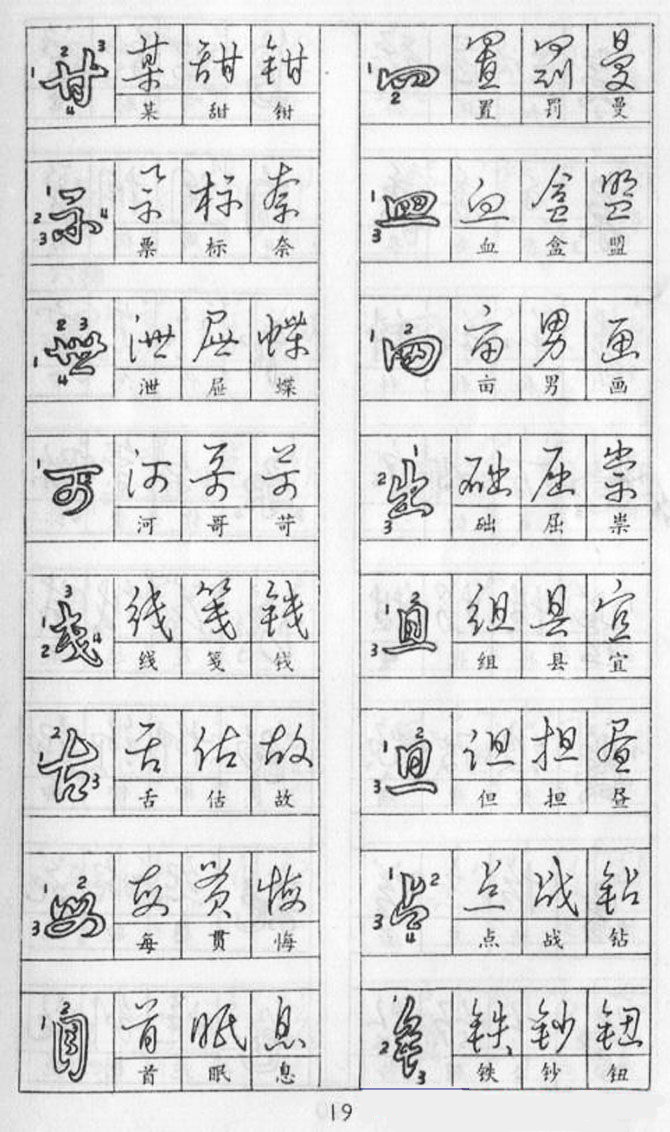 甘 某 甜 钳
某 甜 钳
示 票 标 奈
票 标 奈
世 泄 屉 蝶
泄 屉 蝶
可 河 哥 苛
河 哥 苛
线 笺 钱
线 笺 钱
舌 估 故
舌 估 故
每 贯 悔
每 贯 悔
首 眠 息
首 眠 息
四 置 罚 曼
置 罚 曼
皿 血 盒 盟
血 盒 盟
田 亩 男 画
亩 男 画
出 础 屈 祟
础 屈 祟
且 组 县 宜
组 县 宜
旦 但 担 昼
但 担 昼
占 点 战 钻
点 战 钻
铁 钞 钮
铁 钞 钮
19